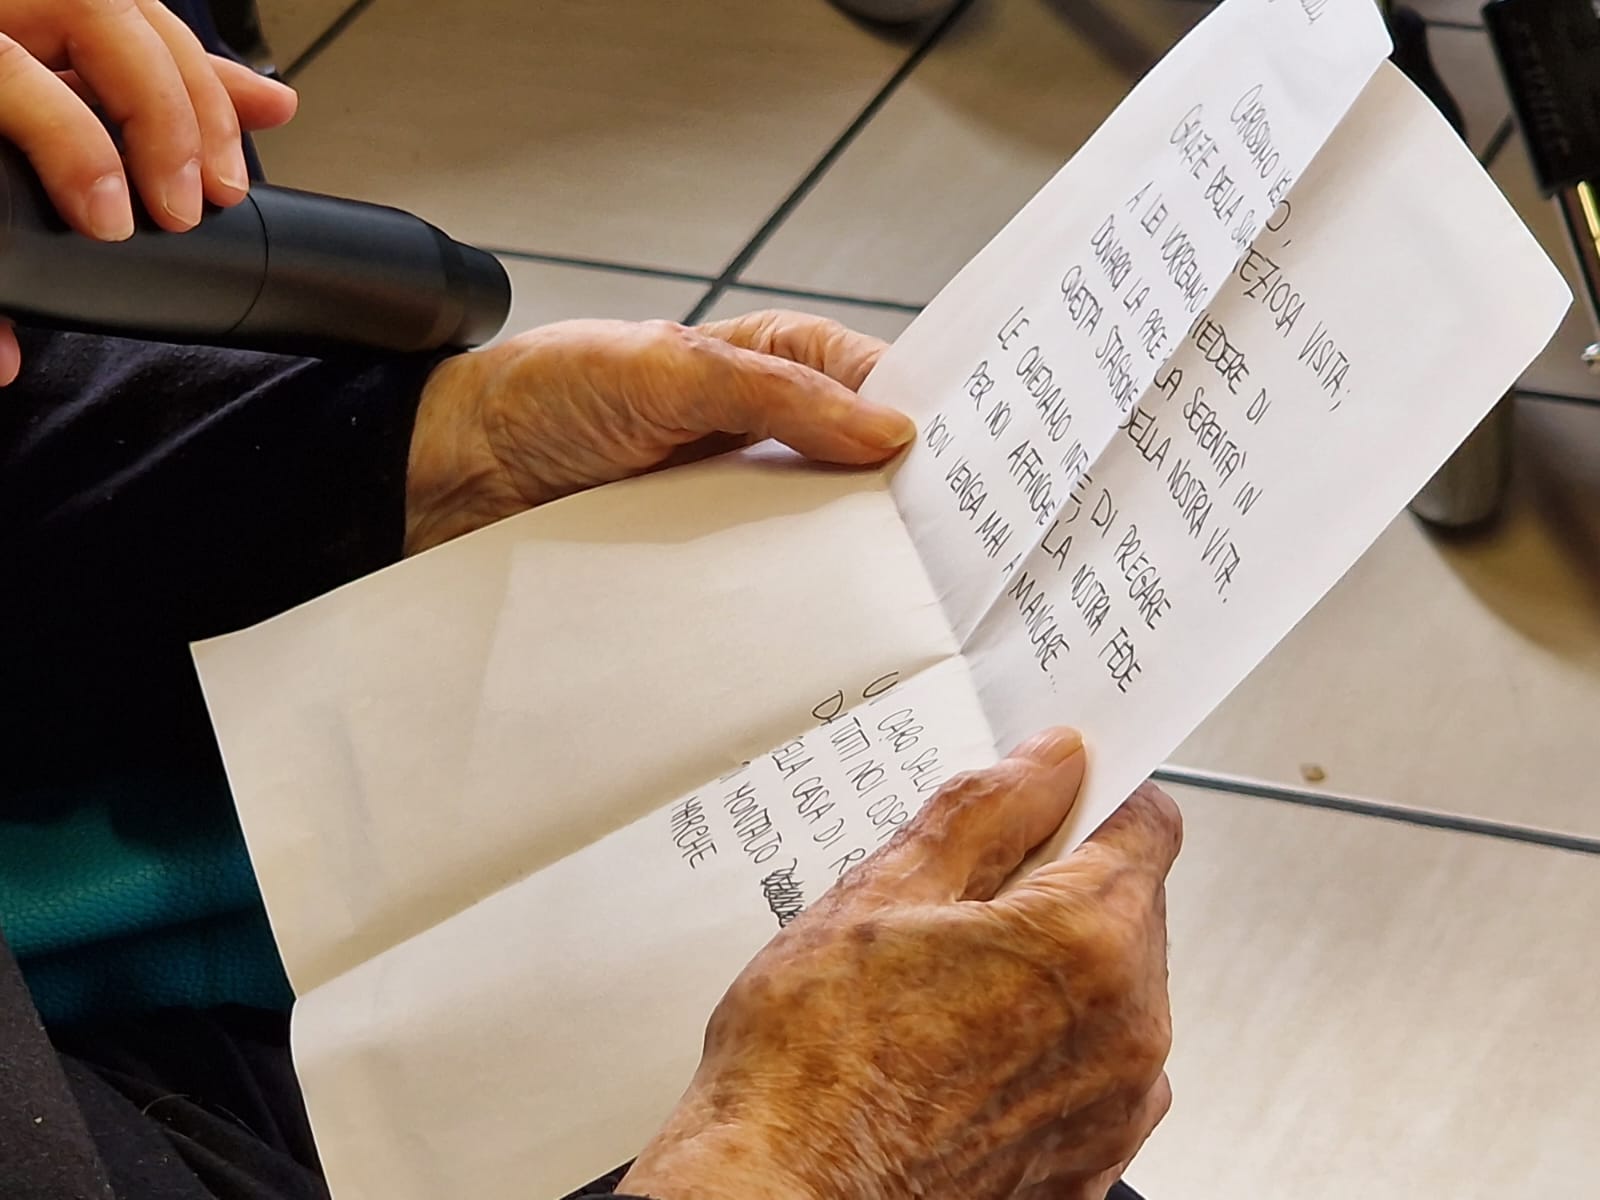 CARISSIMO VESCOVO,
GRAZIE DELLA SUA PREZIOSA VISITA;
A LEI VORREMMO CHIEDERE DI
DONARCI LA PACE E LA SERENITÀ IN
QUESTA STAGIONE DELLA NOSTRA VITA.
LE CHIEDIAMO INFINE DI PREGARE
PER NOI AFFINCHÉ LA NOSTRA FEDE
NON VENGA MAI A MANCARE...
UN CARO SALUTO
DA TUTTI NOI OSPITI
DELLA CASA DI
DI MONTALTO
MARCHE